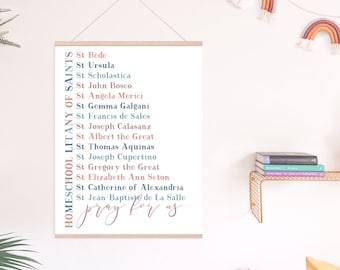 HOMESCHOOL LITANY OF SAINTS
St Bede
St Ursula
St Scholastica
St John Bosco
St Angela Merici
St Gemma Galgani
St Francis de Sales
St Joseph Calasanz
St Albert the Great
St Thomas Aquinas
St Joseph Cupertino
St Gregory the Great
St Elizabeth Ann Seton
St Catherine of Alexandria
St Jean-Baptiste de La Salle
pray for us